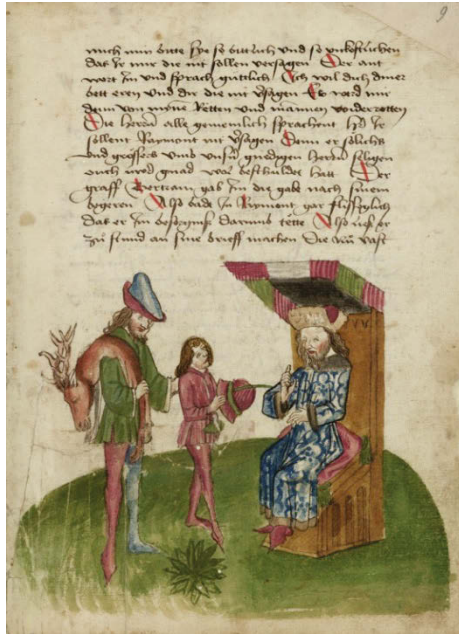 9
mich min bitte sye so bittlich und so
das ir mir die nit sollen versagen Der ant
wort im und sprach gůttlich Ich wil dich diner
bett eren und dir die nit v̄sagen Es werd mir
denn von myne Retten und mannen widerrotten
Die herrn̄ alle gemeinlich sprachent H̄s Ir
sollent Raymont nit v̄sagen Denn er sölichs
und grössers umb unsn̄ gnedigen herrn̄ seligen
ouch uwer gnad was beschuldet hatt Der
graff Bertram gab im die gab nach sinem
begeren Also badt In Raymont gar flyssiglich
das er im besorgnuß darumb tette Also ließ er
zů stund an sine brieff machen Die nū vast